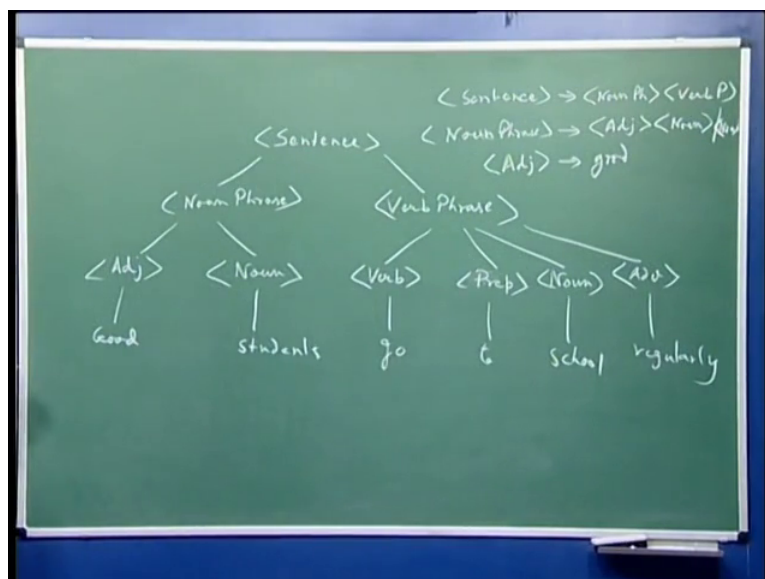 <Sentence> → <Noun Ph> <Verb P>
<Noun Phrase> → <Adj> <Noun>
<Adj> → good
<Sentence>
<Noun Phrase> <Verb Phrase>
<Adj> <Noun> <Verb> <Prep> <Noun> <Adv>
Good students go to school regularly